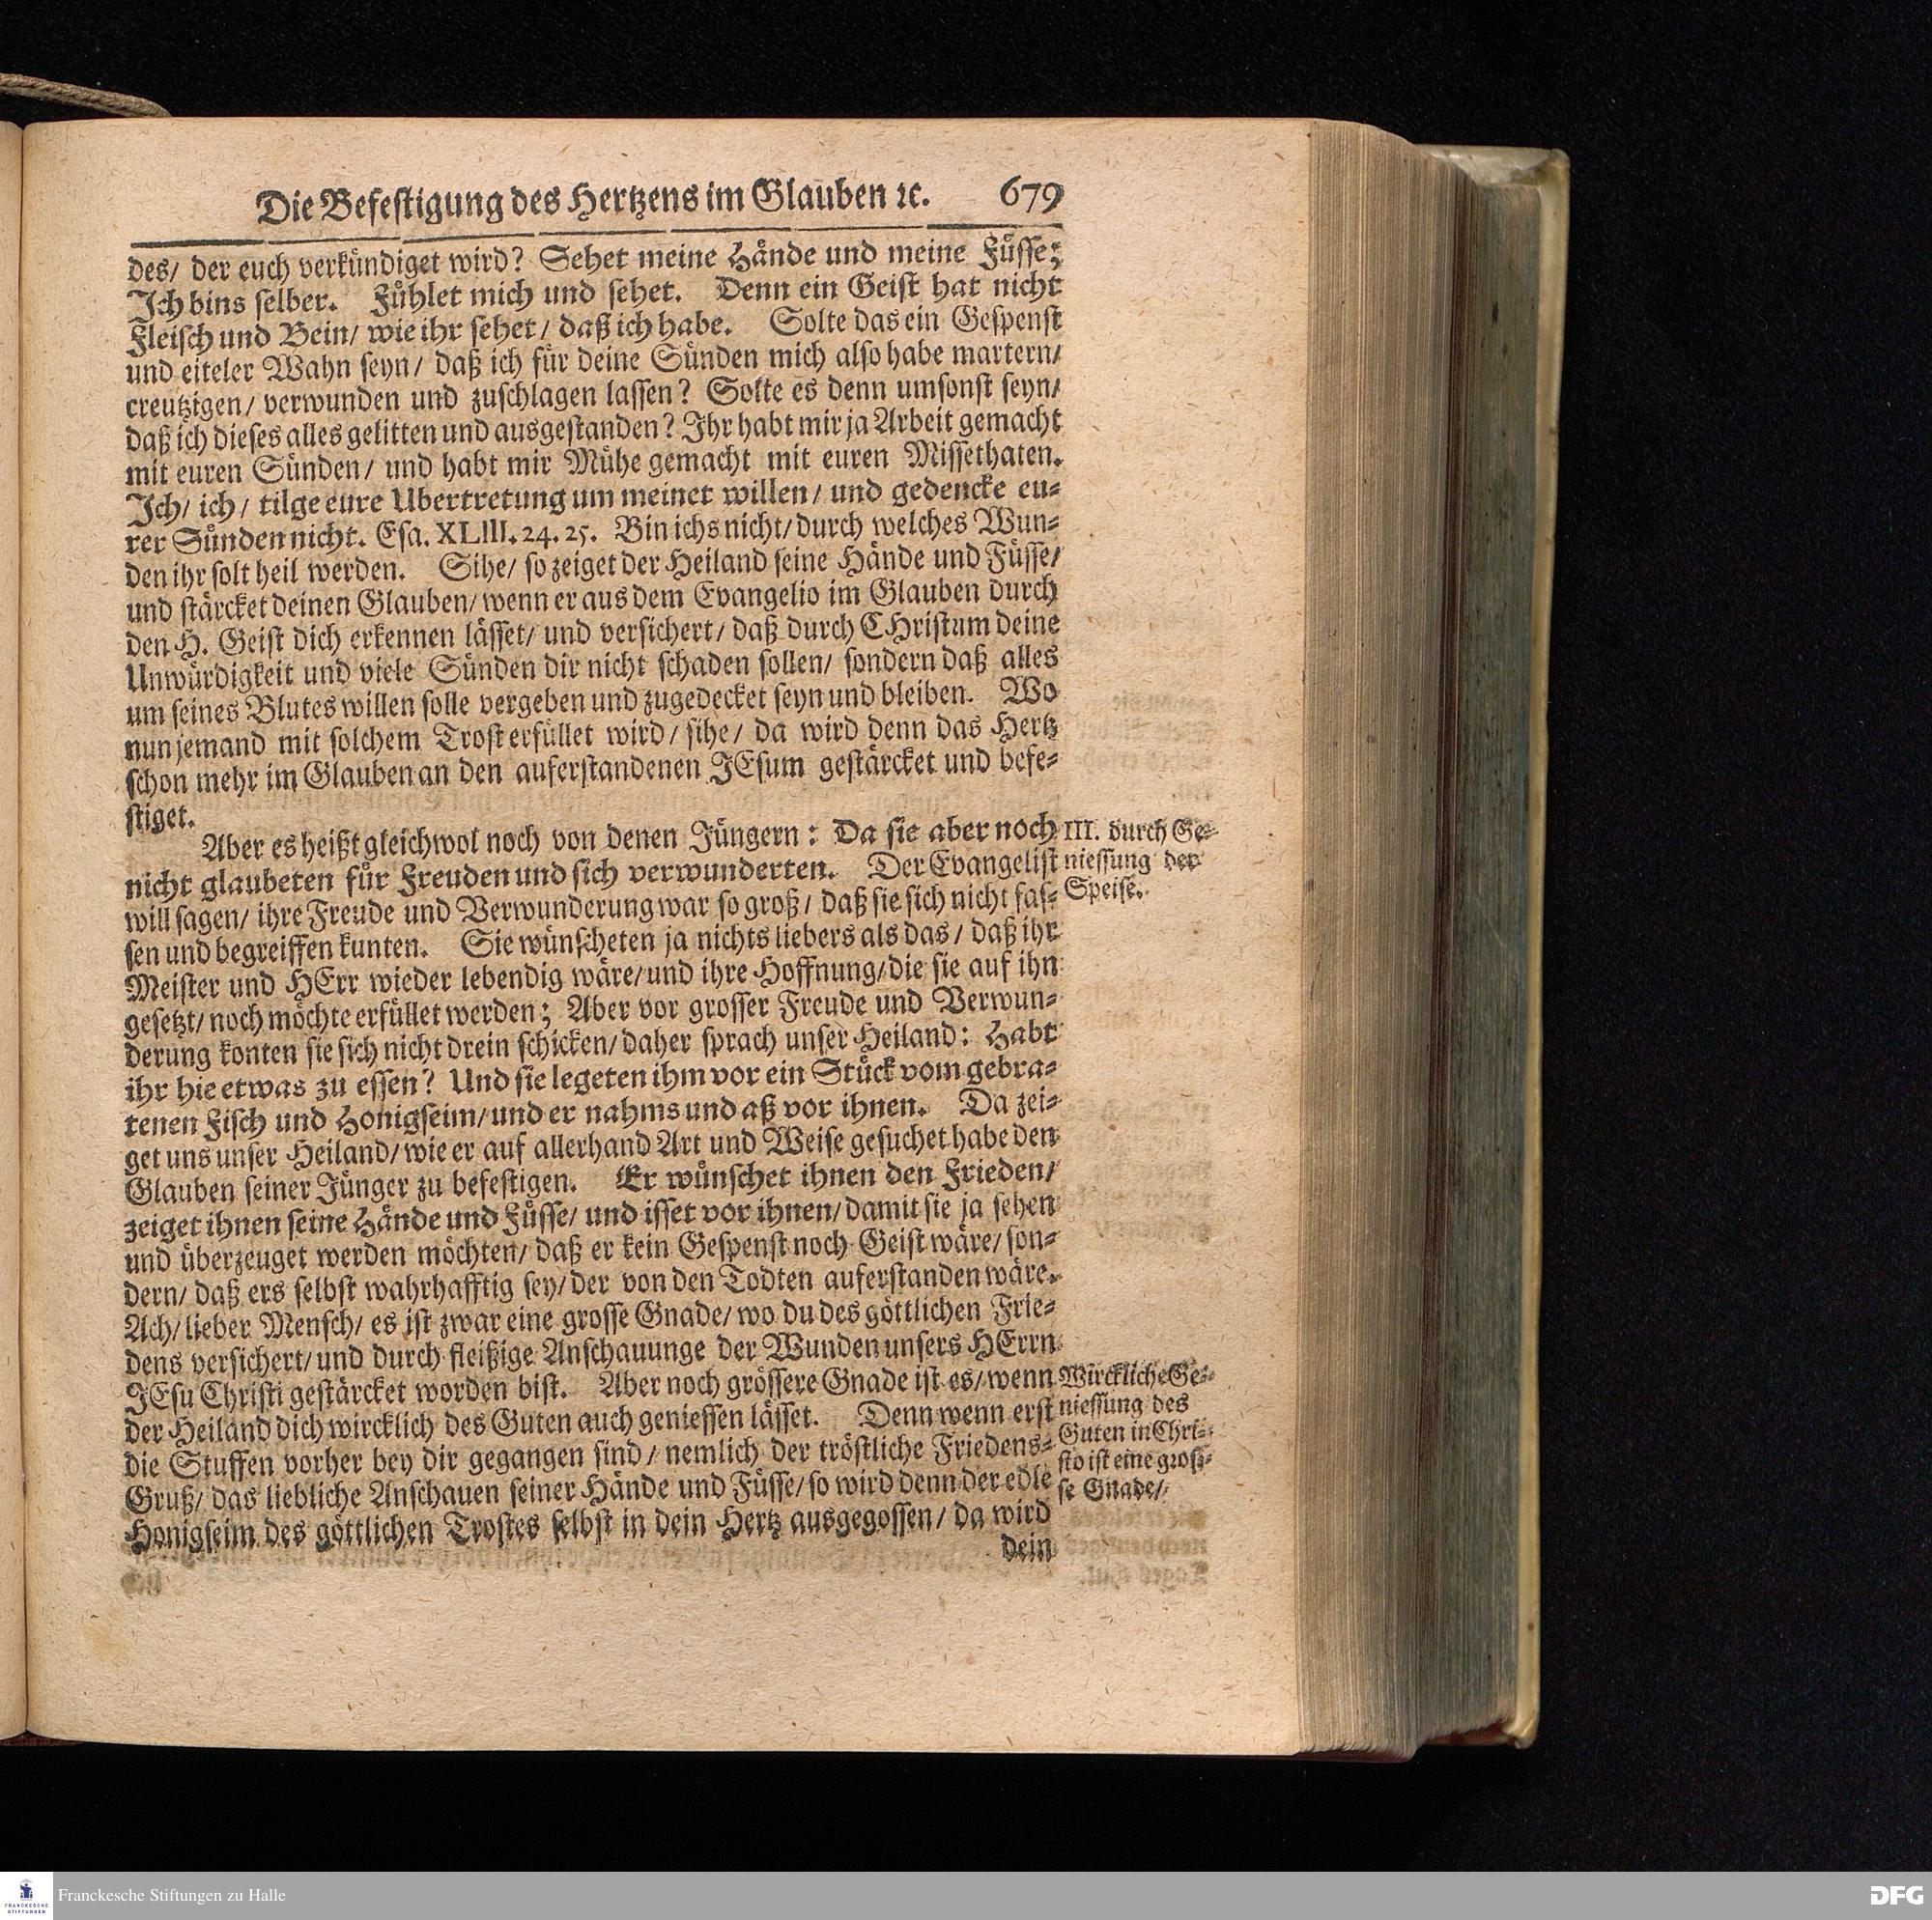 Die Befestigung des Hertzens im Glauben ꝛc. 679
des/ der euch verkündiget wird? Sehet meine Hände und meine Füsse;
Ich bins selber. Fühlet mich und sehet. Denn ein Geist hat nicht
Fleisch und Bein/ wie ihr sehet/ daß ich habe. Solte das ein Gespenst
und eiteler Wahn seyn/ daß ich für deine Sünden mich also habe martern/
creutzigen/ verwunden und zuschlagen lassen? Solte es denn umsonst seyn/
daß ich dieses alles gelitten und ausgestanden? Ihr habt mir ja Arbeit gemacht
mit euren Sünden/ und habt mir Mühe gemacht mit euren Missethaten.
Ich/ ich/ tilge eure Ubertretung um meinet willen/ und gedencke eu-
rer Sünden nicht. Esa. XLIII. 24. 25. Bin ichs nicht/ durch welches Wun-
den ihr solt heil werden. Sihe/ so zeiget der Heiland seine Hände und Füsse/
und stärcket deinen Glauben/ wenn er aus dem Evangelio im Glauben durch
den H. Geist dich erkennen lässet/ und versichert/ daß durch CHristum deine
Unwürdigkeit und viele Sünden dir nicht schaden sollen/ sondern daß alles
um seines Blutes willen solle vergeben und zugedecket seyn und bleiben. Wo
nun jemand mit solchem Trost erfüllet wird/ sihe/ da wird denn das Hertz
schon mehr im Glauben an den auferstandenen JEsum gestärcket und befe-
stiget.
Aber es heißt gleichwol noch von denen Jüngern: Da sie aber noch
nicht glaubeten für Freuden und sich verwunderten. Der Evangelist
will sagen/ ihre Freude und Verwunderung war so groß/ daß sie sich nicht fas-
sen und begreiffen kunten. Sie wünscheten ja nichts liebers als das/ daß ihr
Meister und HErr wieder lebendig wäre/ und ihre Hoffnung/ die sie auf ihn
gesetzt/ noch möchte erfüllet werden; Aber vor grosser Freude und Verwun-
derung konten sie sich nicht drein schicken/ daher sprach unser Heiland: Habt
ihr hie etwas zu essen? Und sie legeten ihm vor ein Stück vom gebra-
tenen Fisch und Honigseim/ und er nahms und aß vor ihnen. Da zei-
get uns unser Heiland/ wie er auf allerhand Art und Weise gesuchet habe den
Glauben seiner Jünger zu befestigen. Er wünschet ihnen den Frieden/
zeiget ihnen seine Hände und Füsse/ und isset vor ihnen/ damit sie ja sehen
und überzeuget werden möchten/ daß er kein Gespenst noch Geist wäre/ son-
dern/ daß ers selbst wahrhafftig sey/ der von den Todten auferstanden wäre.
Ach/ lieber Mensch/ es ist zwar eine grosse Gnade/ wo du des göttlichen Frie-
dens versichert/ und durch fleißige Anschauunge der Wunden unsers HErrn
JEsu Christi gestärcket worden bist. Aber noch grössere Gnade ist es/ wenn
der Heiland dich wircklich des Guten auch geniessen lässet. Denn wenn erst
die Stuffen vorher bey dir gegangen sind/ nemlich der tröstliche Friedens-
Gruß/ das liebliche Anschauen seiner Hände und Füsse/ so wird denn der edle
Honigseim des göttlichen Trostes selbst in dein Hertz ausgegossen/ da wird
dein
III. durch Ge-
niessung der
Speise.
Wirckliche Ge-
niessung des
Guten in Chri-
sto ist eine gros-
se Gnade/
Franckesche Stiftungen zu Halle
FRANCKESCHE
STIFTUNGEN
DFG